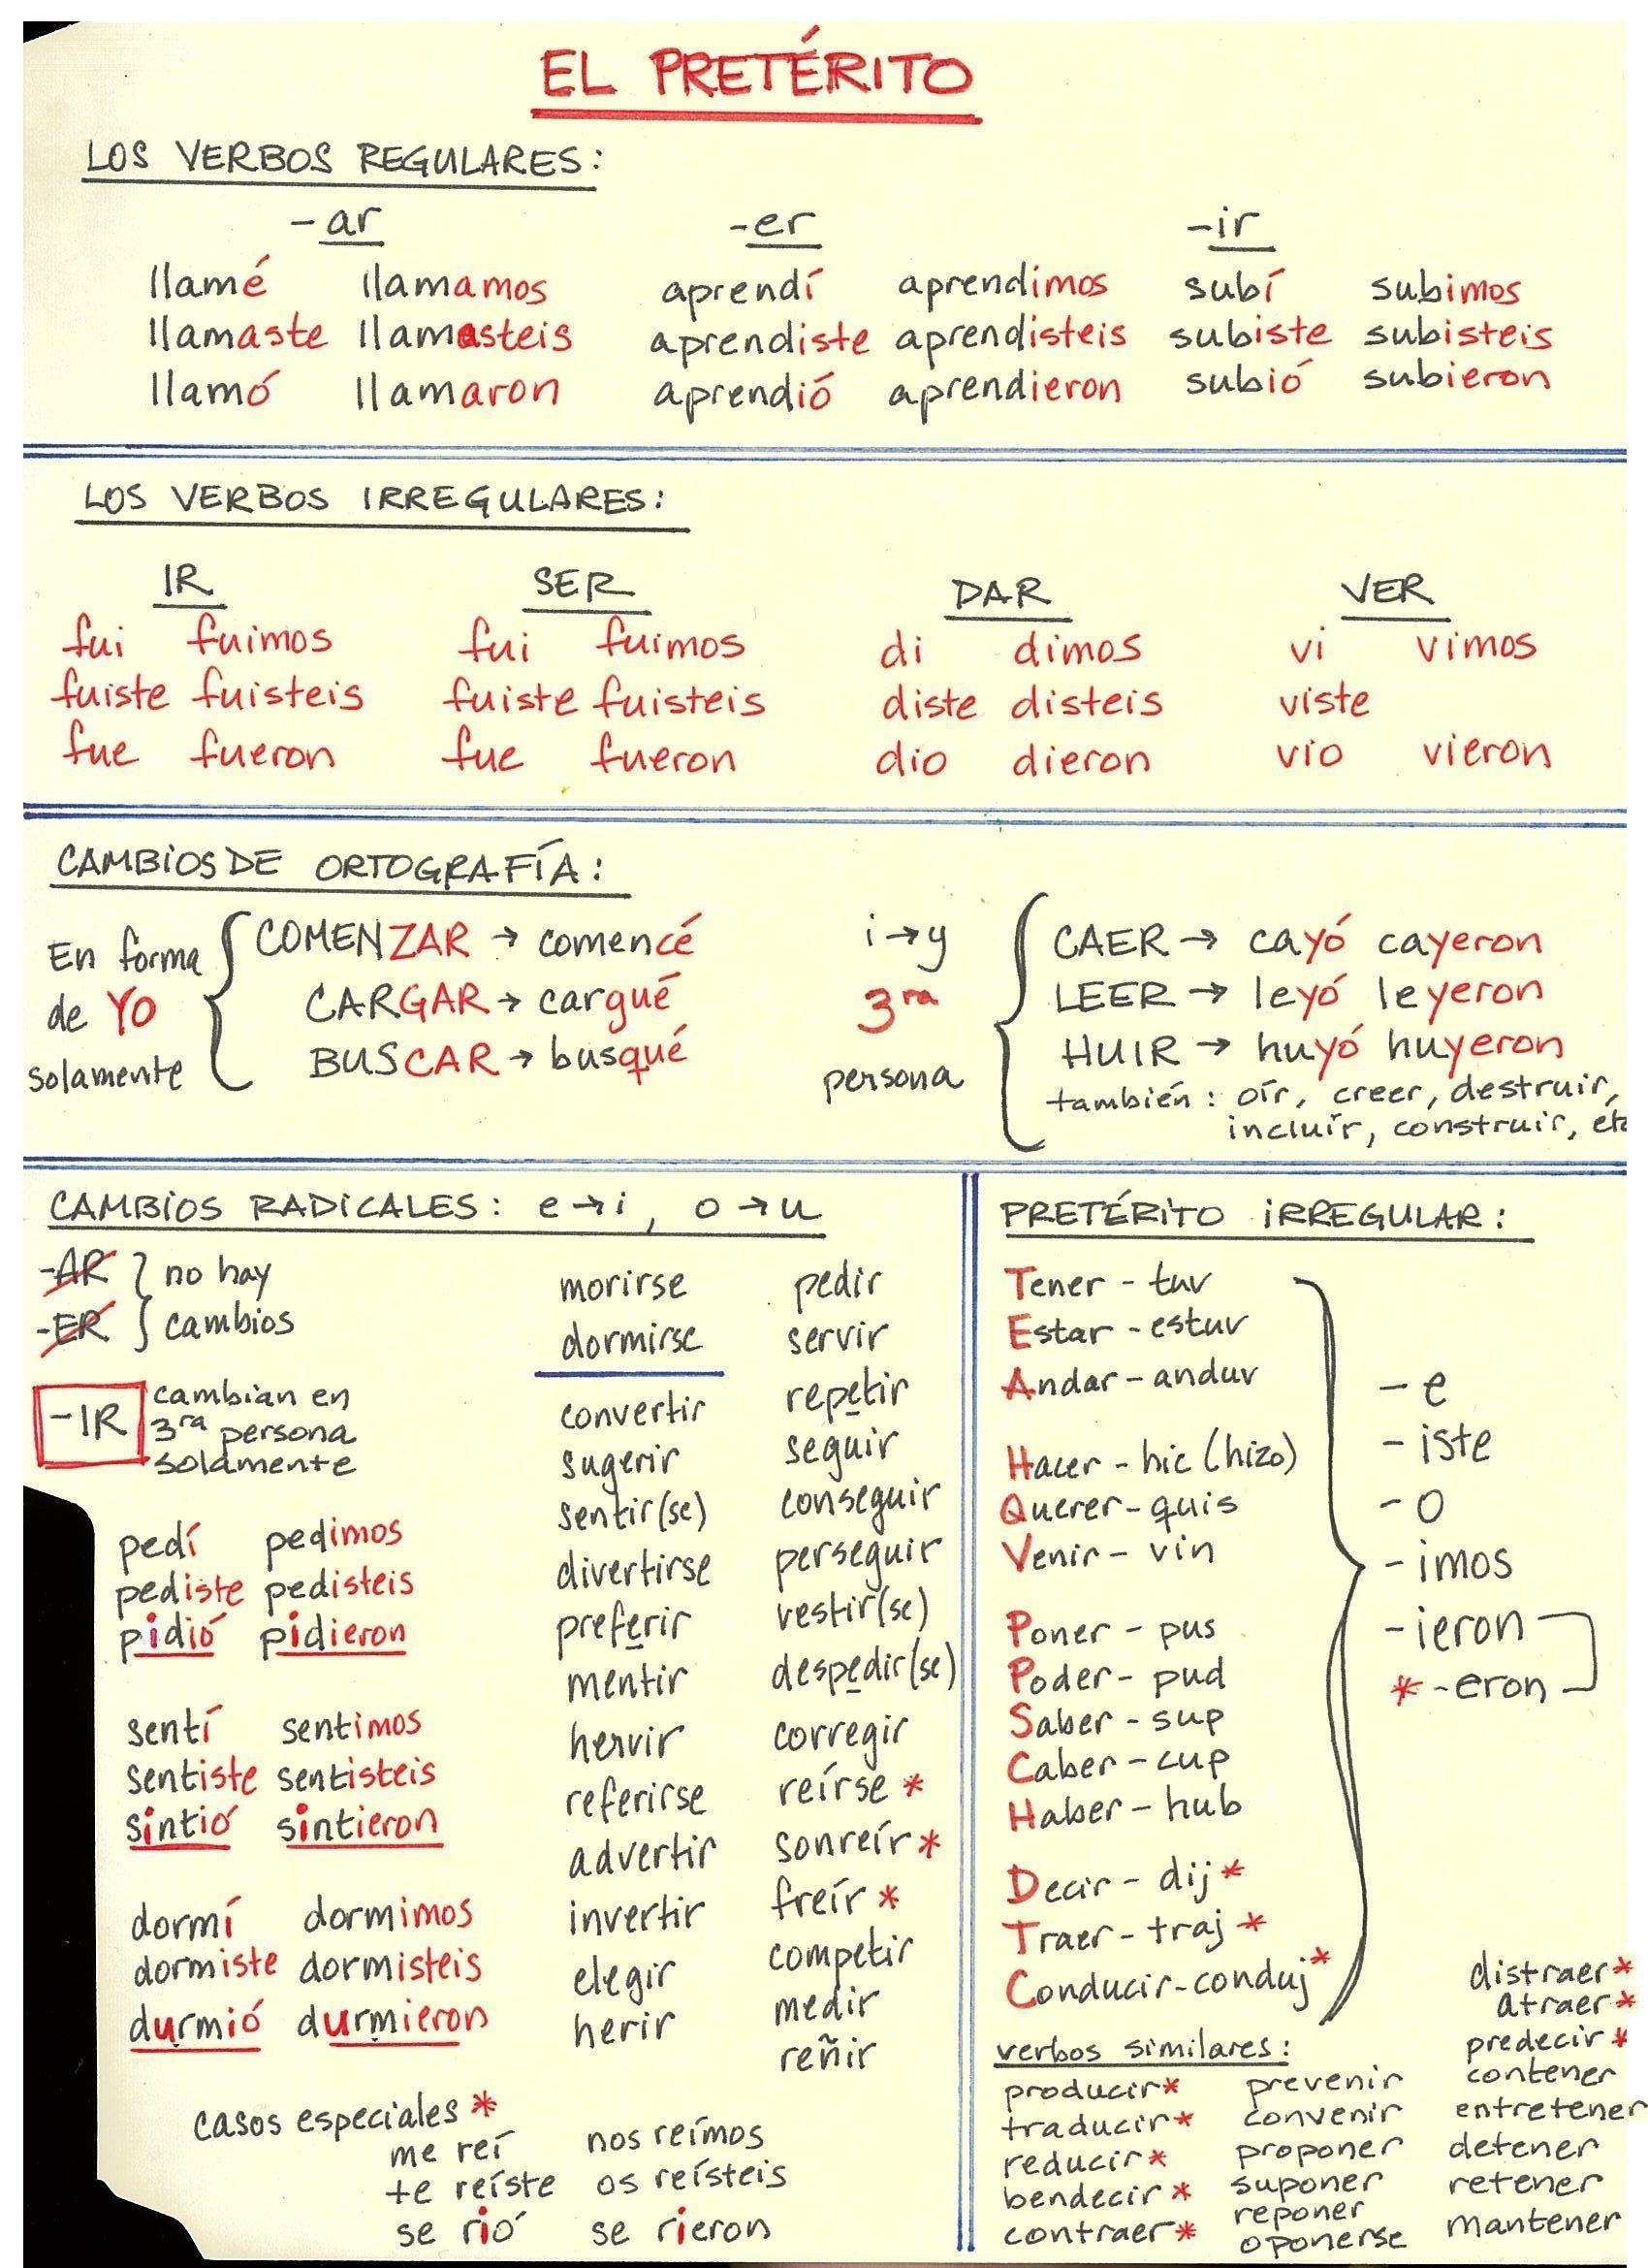 EL PRETÉRITO
LOS VERBOS REGULARES:
-ar -er -ir
llamé llamamos aprendí aprendimos subí subimos
llamaste llamasteis aprendiste aprendisteis subiste subisteis
llamó llamaron aprendió aprendieron subió subieron
LOS VERBOS IRREGULARES:
IR SER DAR VER
fui fuimos fui fuimos di dimos vi vimos
fuiste fuisteis fuiste fuisteis diste disteis viste
fue fueron fue fueron dio dieron vio vieron
CAMBIOS DE ORTOGRAFÍA:
En forma
de YO
solamente
COMENZAR → comencé
CARGAR → cargué
BUSCAR → busqué
i→y
3ra
persona
CAER → cayó cayeron
LEER → leyó leyeron
HUIR → huyó huyeron
también: oír, creer, destruir,
incluír, construir, etc
CAMBIOS RADICALES: e→i, o→u
-AR } no hay
-ER } cambios
-IR cambian en
3ra persona
solamente
pedí pedimos
pediste pedisteis
pidió pidieron
sentí sentimos
sentiste sentisteis
sintió sintieron
dormí dormimos
dormiste dormisteis
durmió durmieron
morirse
dormirse
convertir
sugerir
sentir(se)
divertirse
preferir
mentir
hervir
referirse
advertir
invertir
elegir
herir
pedir
servir
repetir
seguir
conseguir
perseguir
vestir(se)
despedir(se)
corregir
reírse *
sonreír *
freír *
competir
medir
reñir
casos especiales *
me reí nos reímos
te reíste os reísteis
se rió se rieron
PRETÉRITO IRREGULAR:
Tener - tuv
Estar - estuv
Andar - anduv
Hacer - hic (hizo)
Querer - quis
Venir - vin
Poner - pus
Poder - pud
Saber - sup
Caber - cup
Haber - hub
Decir - dij *
Traer - traj *
Conducir - conduj *
- e
- iste
- o
- imos
- ieron
* - eron
verbos similares:
producir *
traducir *
reducir *
bendecir *
contraer *
prevenir
convenir
proponer
suponer
reponer
oponerse
distraer *
atraer *
predecir *
contener
entretener
detener
retener
mantener